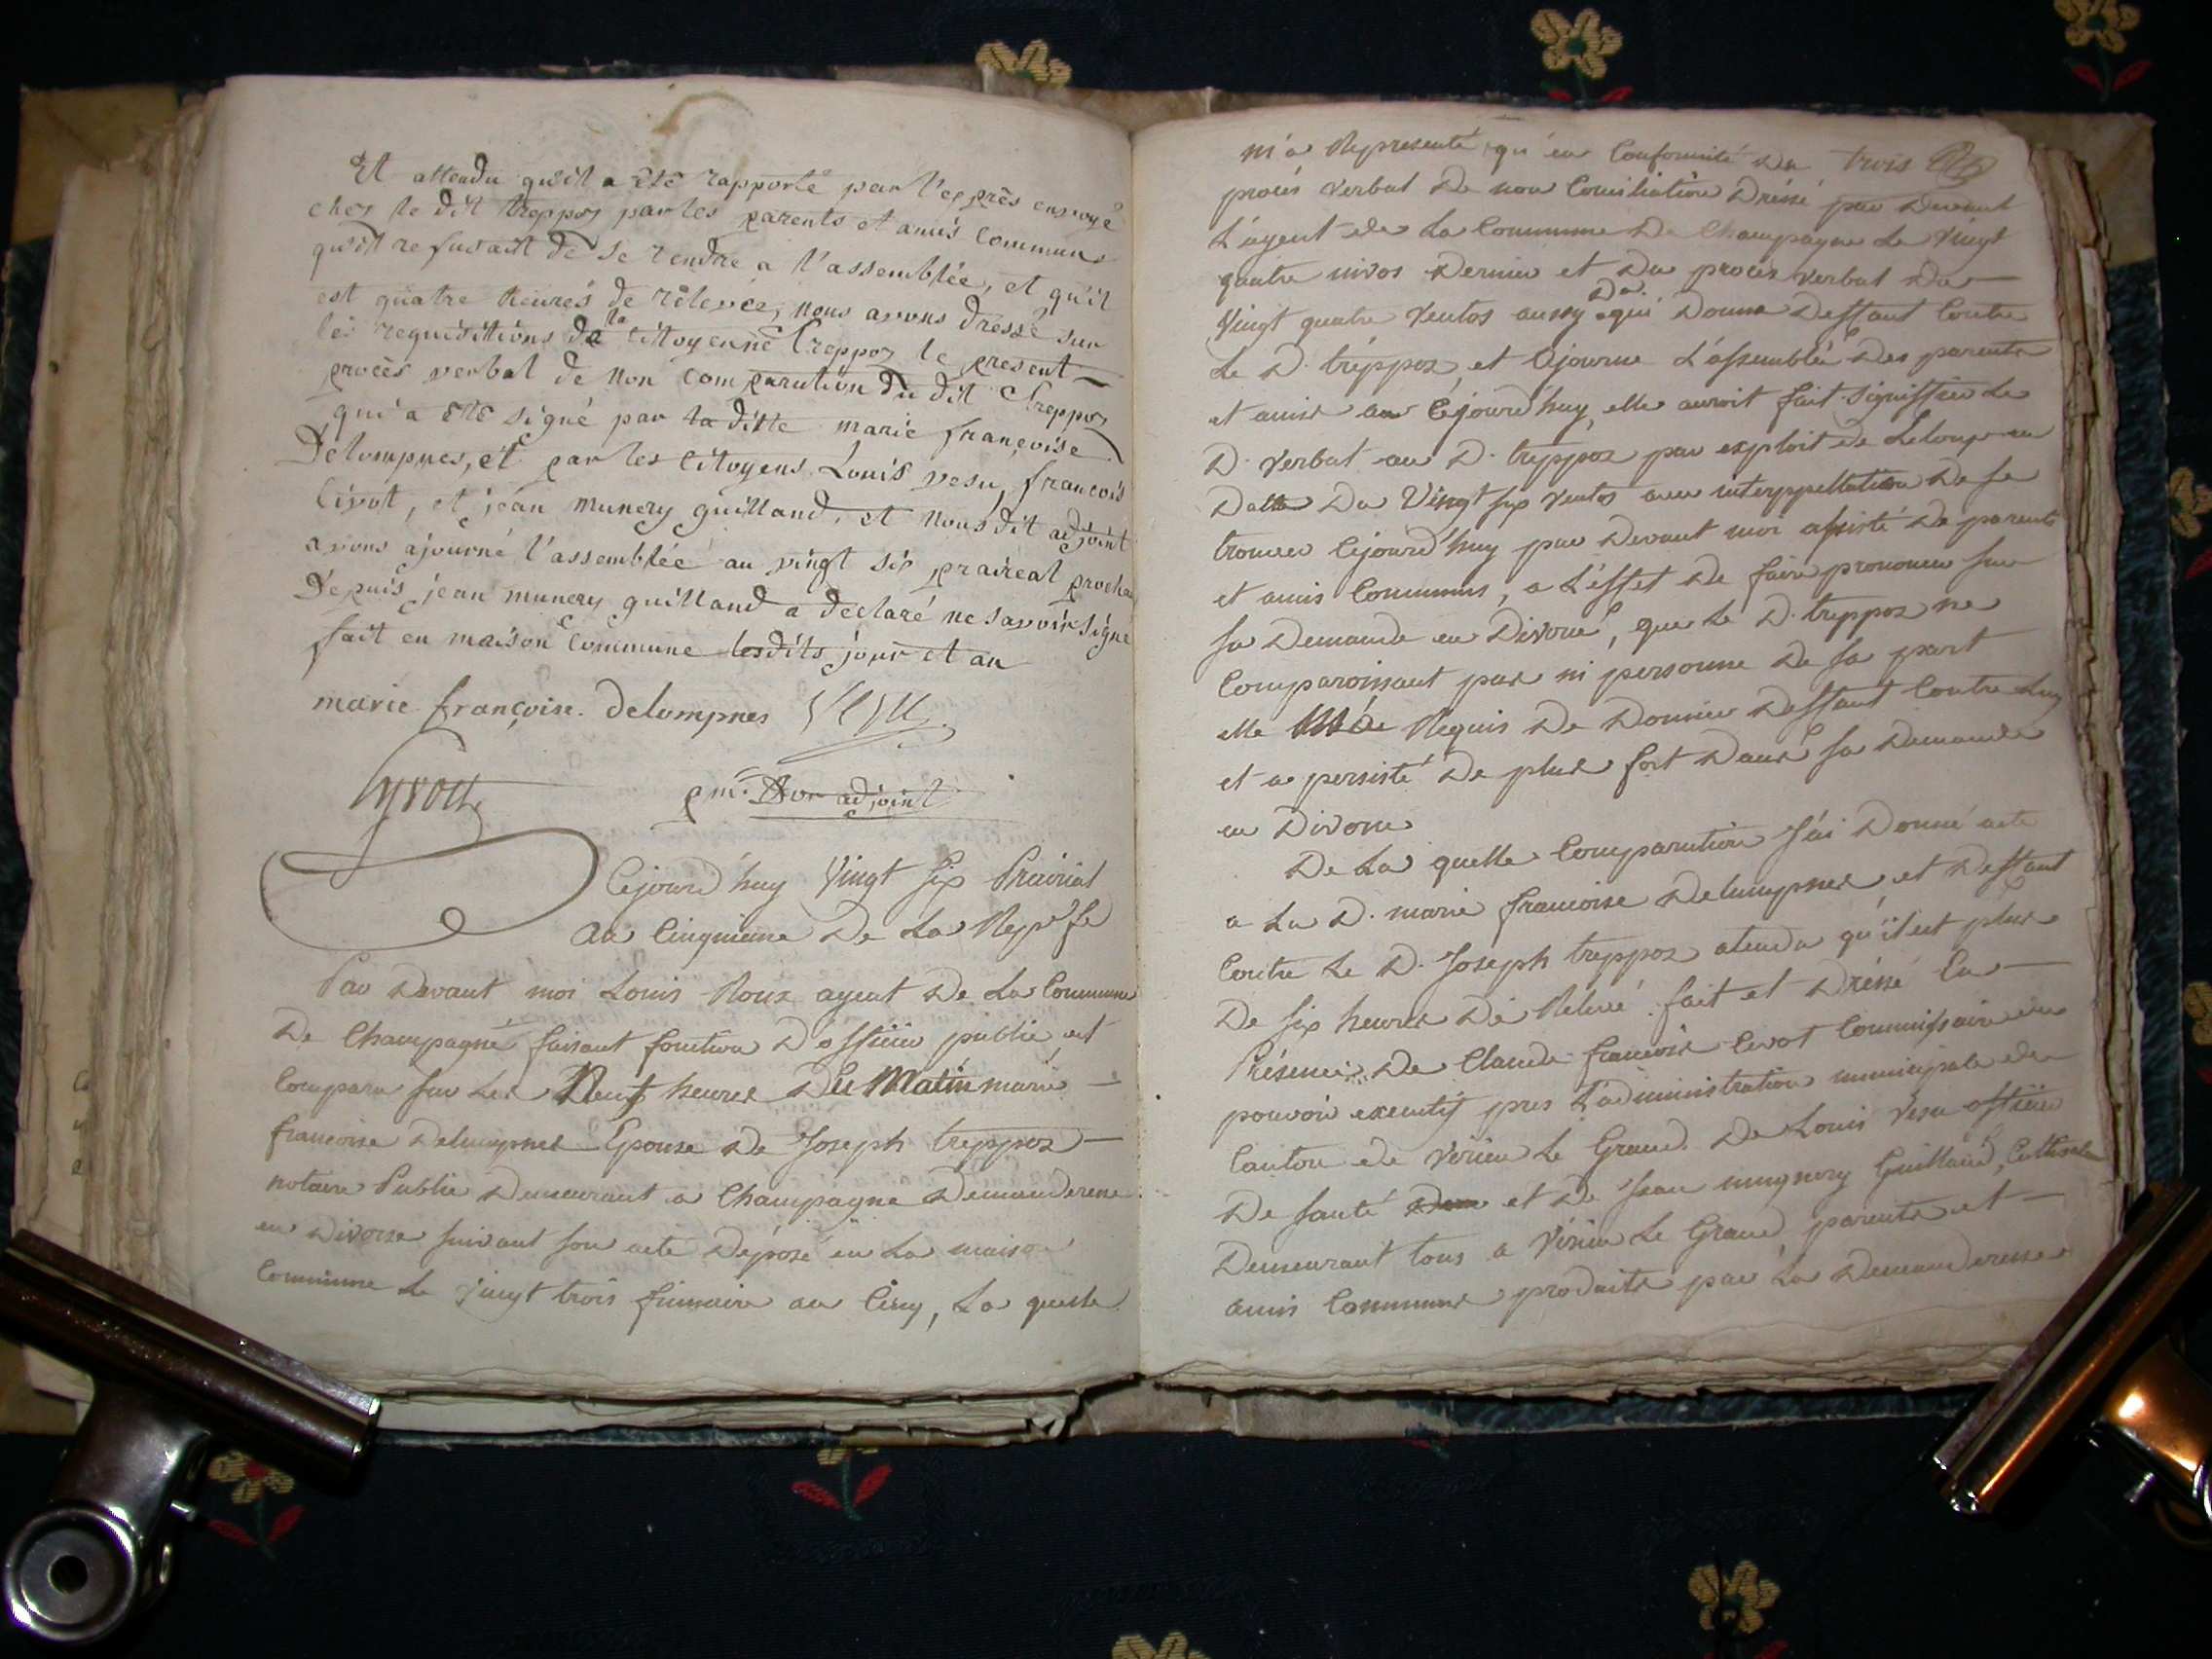 Et attendu qu'il a été rapporté par l'exprès envoyé
chez le dit treppoz par les parents et amis communs
qu'il refusait de se rendre a l'assemblée, et qu'il
est quatre heures de relevée, nous avons dressé sur
les requisitions de la citoyenne treppoz le present
procès verbal de non comparution du dit treppoz
qui a été signé par la ditte marie françoise
Delompnes, et par les citoyens Louis vesu, françois
Civot, et jean munery guilland, et nous dit adjoint
avons ajourné l'assemblée au vingt six praireal prochain
Depuis jean munery guilland a declaré ne savoir signé
fait en maison commune lesdits jour et an
marie françoise. delompnes Vesu
adjoint
Cejourd'huy Vingt six Prairial
an Cinquieme De La
Par Devant moi Louis Roux agent De La Commune
De Champagne faisant fonction D'officier public est
Comparu sur Les Neuf heures Du Matin marie
francoise Delompnes Epouse De Joseph treppoz
notaire Public Demeurant a Champagne Demanderesse
en Divorce suivant son acte Déposé en La maison
Commune Le vingt trois frimaire an Cinq, La quelle
m'a Representé qu'en Conformité Du trois
procès verbal De non Conciliation Dréssé par Devant
L'agent de La Commune De Champagne Le Vingt
quatre nivos Dernier et Du procès verbal Du
Vingt quatre Ventos aussy Der. qui Donna Deffaut Contre
Le D. tréppoz et ajourne L'assemblée Des parents
et amis au Cejourd'huy, elle auroit fait signiffier Le
D. verbal au D. treppoz par exploit de Leloup en
Datte Du Vingt six Ventos avec interppellation De se
trouver Cejourd'huy par Devant moi assisté De parents
et amis Communs, a L'effet De faire prononcer sur
sa Demande en Divorce, que Le D. treppoz ne
Comparoissant pas ni personne De sa part
elle Requis De Donner Deffaut Contre Luy
et a persisté De plus fort Dans sa Demande
en Divorce
De La quelle Comparution J'ai Donné acte
a La D. marie francoise Delompnes et Deffaut
Contre Le D. Joseph treppoz atendu qu'il est plus
De six heures De Relevé. fait et Dréssé En
Présence De Claude francois Civot Commissaire du
pouvoir executif pres L'administration municipale du
Canton de Virieu Le Grand. De Louis Vesu officier
De santé et De Jean mugnery Guilland, Cultivateur
Demeurant tous a Virieu Le Grand parents et
amis Communs produits par La Demanderesse